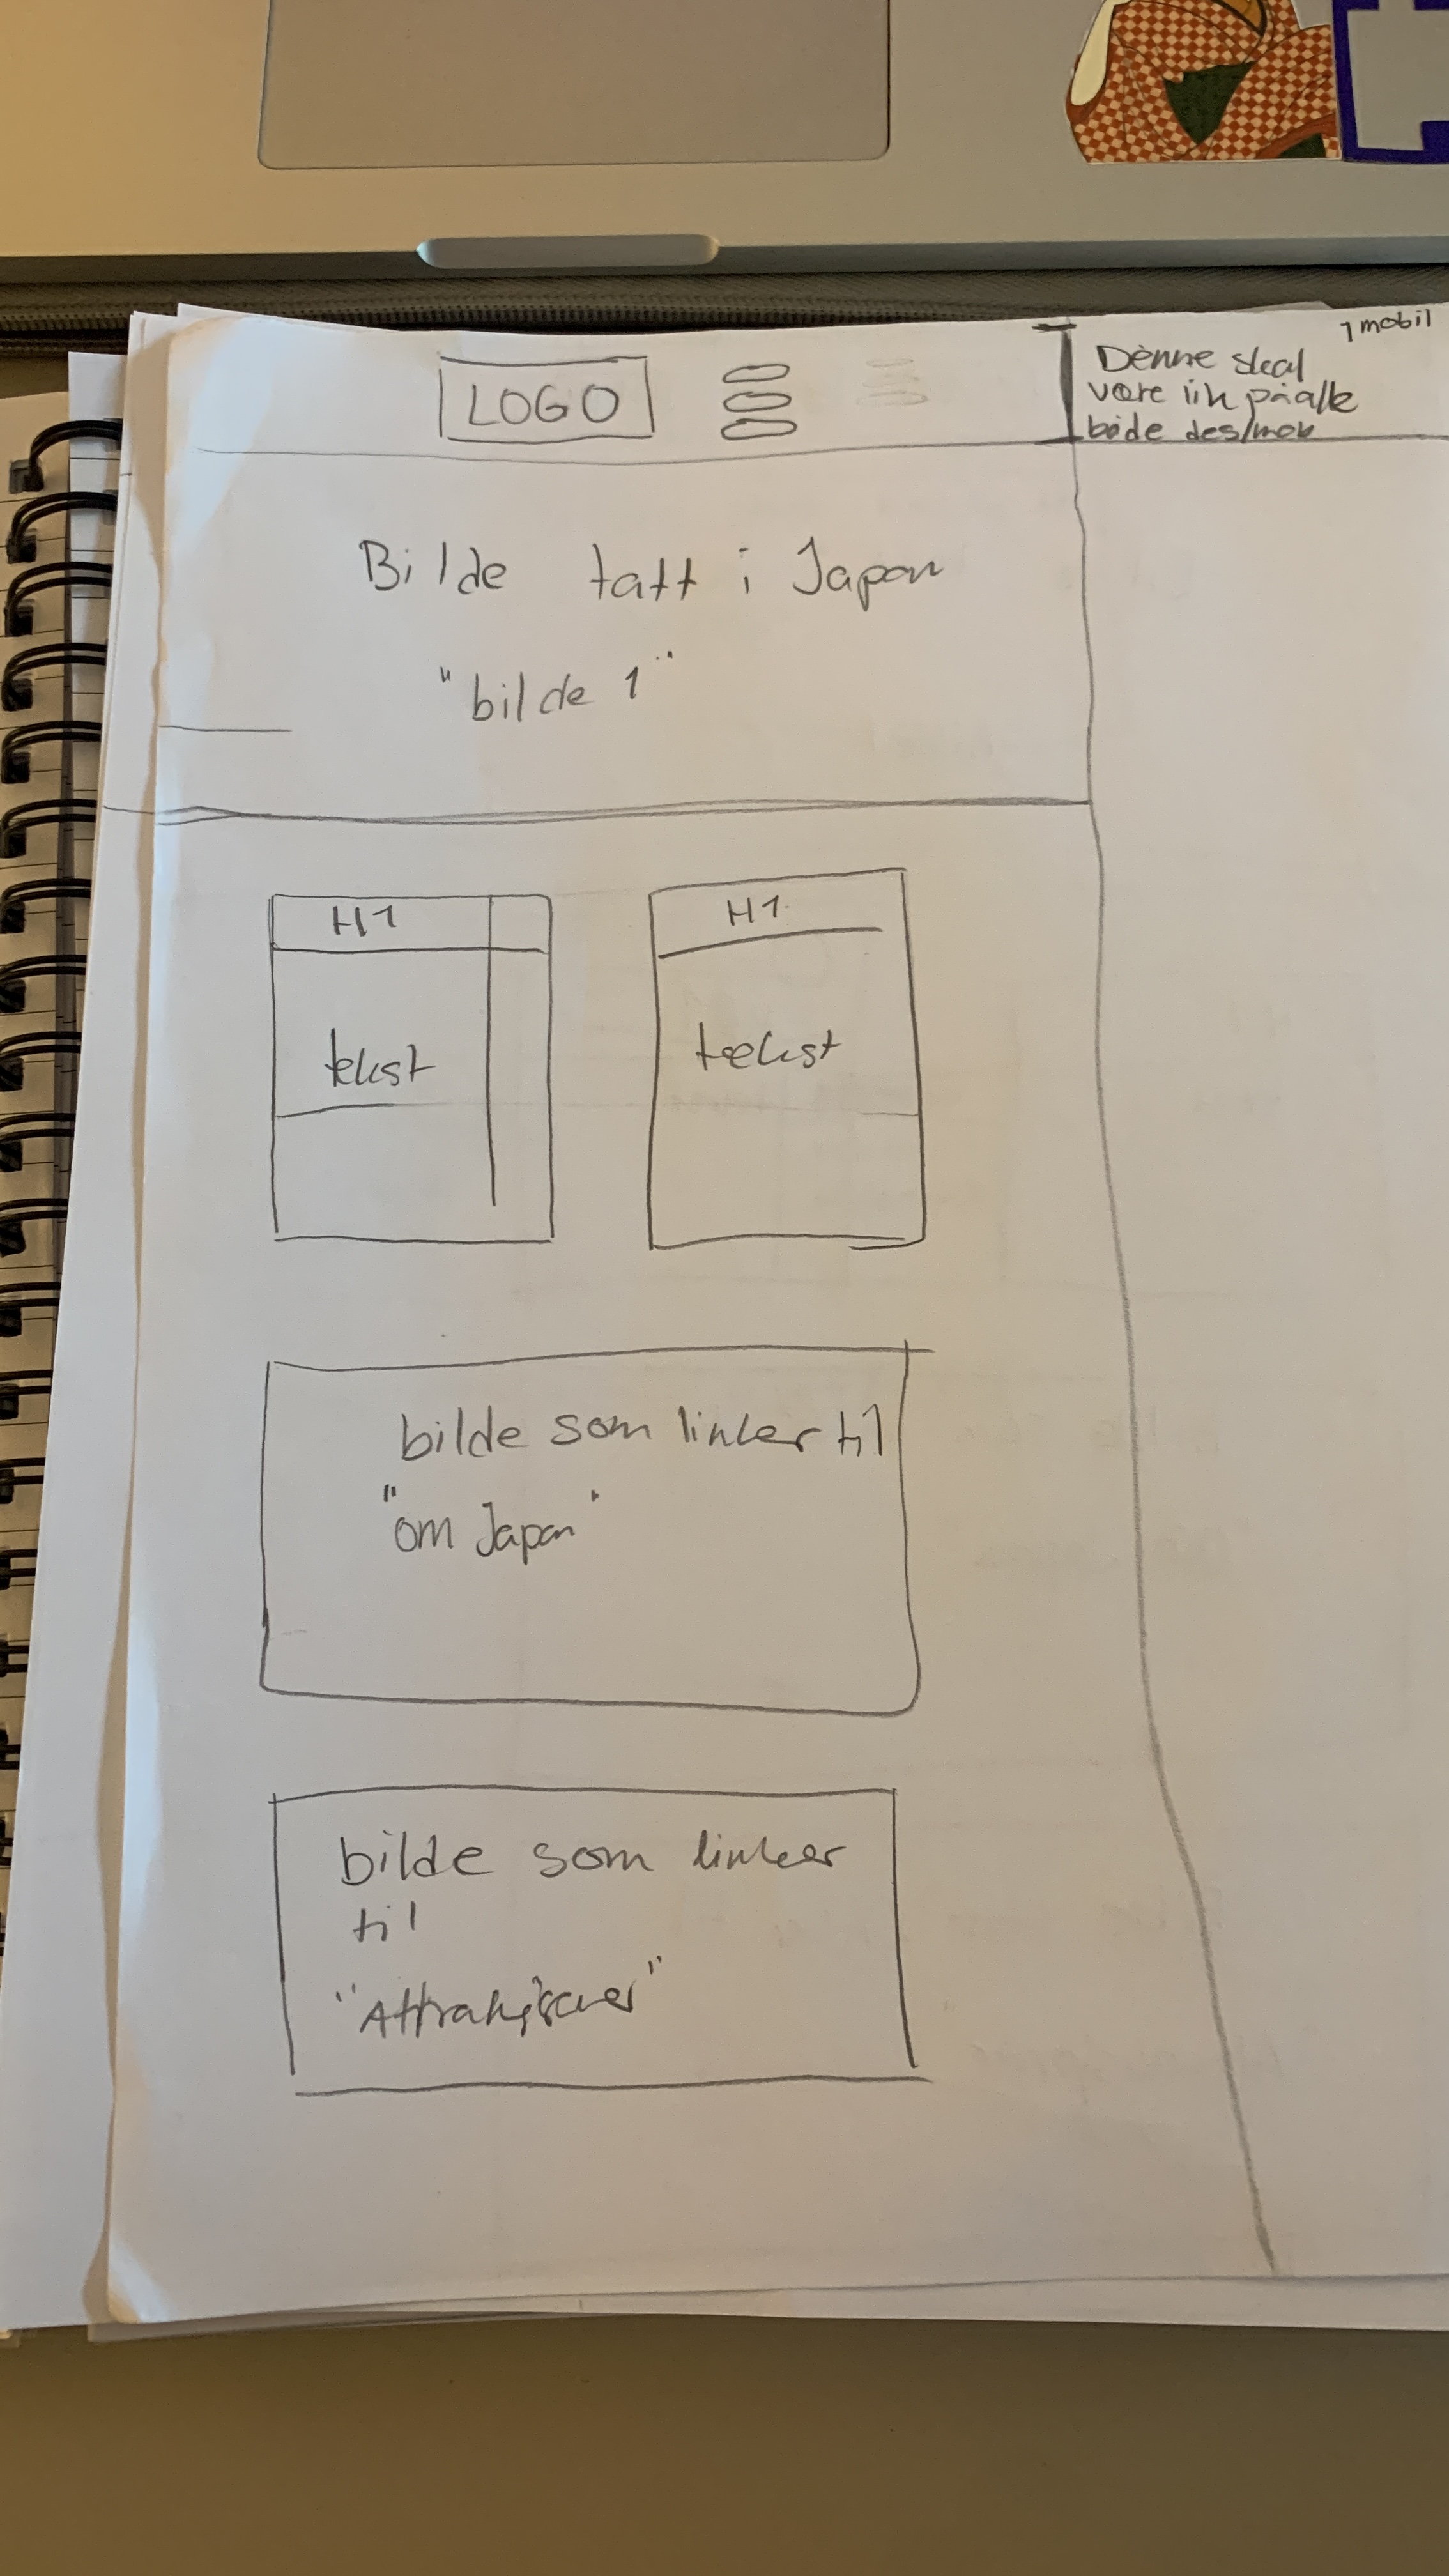 LOGO
1 mobil
Denne skal
være lik på alle
både des/mob
Bilde tatt i Japan
"bilde 1"
H1
tekst
H1
tekst
bilde som linker til
"om Japan"
bilde som linker
til
"Attraksjoner"